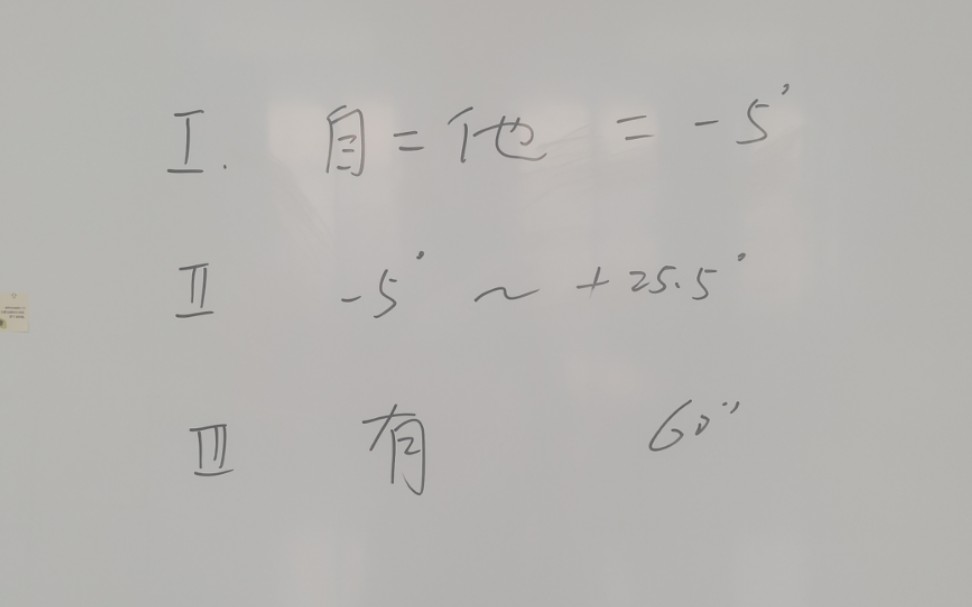 I. 自=他 = -5°
II -5° ~ +25.5°
III 有 60″